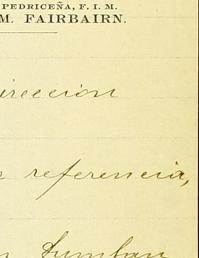 PEDRICEÑA, F. I. M.
M. FAIRBAIRN.
ireccion
referencia,